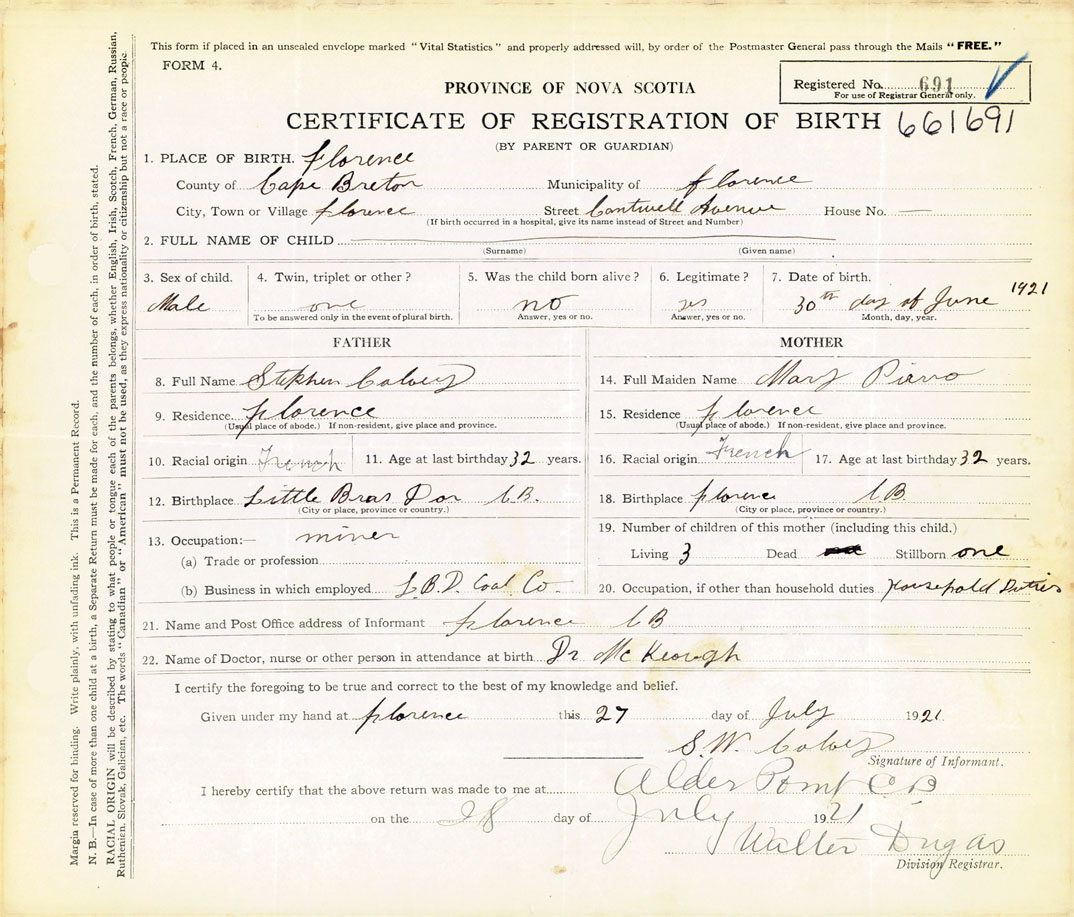 This form if placed in an unsealed envelope marked "Vital Statistics" and properly addressed will, by order of the Postmaster General pass through the Mails "FREE."
FORM 4.
Registered No. 691
For use of Registrar General only.
PROVINCE OF NOVA SCOTIA
CERTIFICATE OF REGISTRATION OF BIRTH 661691
(BY PARENT OR GUARDIAN)
1. PLACE OF BIRTH. Florence
County of Cape Breton Municipality of Florence
City, Town or Village Florence Street Cantwell Avenue House No. —
(If birth occurred in a hospital, give its name instead of Street and Number)
2. FULL NAME OF CHILD
(Surname) (Given name)
3. Sex of child. 4. Twin, triplet or other? 5. Was the child born alive? 6. Legitimate? 7. Date of birth.
Male one no yes 30th day of June 1921
To be answered only in the event of plural birth. Answer, yes or no. Answer, yes or no. Month, day, year.
FATHER MOTHER
8. Full Name Stephen Calvey 14. Full Maiden Name Mary Piano
9. Residence Florence 15. Residence Florence
(Usual place of abode.) If non-resident, give place and province. (Usual place of abode.) If non-resident, give place and province.
10. Racial origin French 11. Age at last birthday 32 years. 16. Racial origin French 17. Age at last birthday 32 years.
12. Birthplace Little Bras Dor C.B. 18. Birthplace Florence C.B.
(City or place, province or country.) (City or place, province or country.)
19. Number of children of this mother (including this child.)
13. Occupation:— miner
Living 3 Dead Stillborn one
(a) Trade or profession
(b) Business in which employed L.B.D. Coal Co. 20. Occupation, if other than household duties Household Duties
21. Name and Post Office address of Informant Florence C B
22. Name of Doctor, nurse or other person in attendance at birth Dr McKeough
I certify the foregoing to be true and correct to the best of my knowledge and belief.
Given under my hand at Florence this 27 day of July 1921.
S.W. Calvey
Signature of Informant.
I hereby certify that the above return was made to me at Alder Point C B
on the 28 day of July 1921
Walter Dugas
Division Registrar.
Margia reserved for binding. Write plainly, with unfading ink. This is a Permanent Record.
N. B.—In case of more than one child at a birth, a Separate Return must be made for each, and the number of each, in order of birth, stated.
RACIAL ORIGIN will be described by stating to what people or tongue each of the parents belongs, whether English, Irish, Scotch, French, German, Russian,
Ruthenian, Slovak, Galician, etc. The words "Canadian" or "American" must not be used, as they express nationality or citizenship but not a race or people.